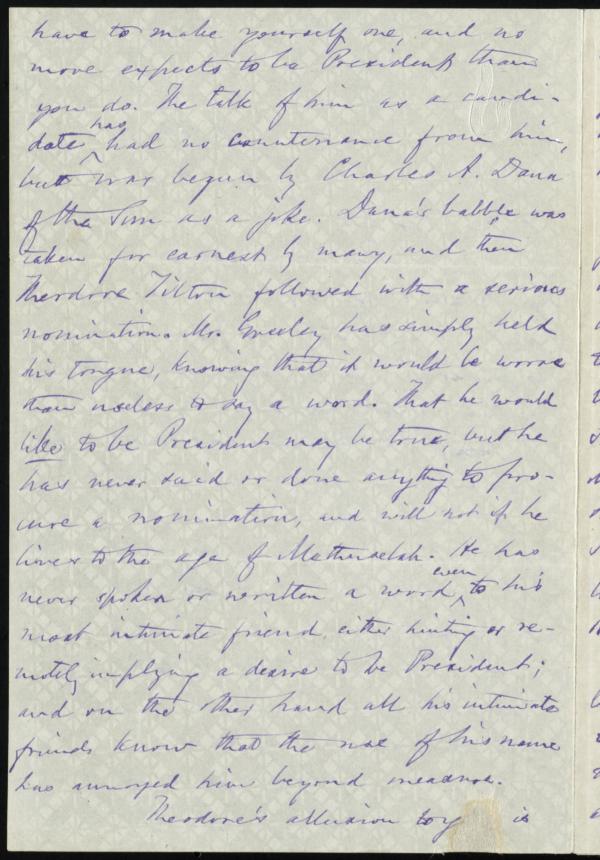 have to make yourself one, and no
more expects to be President than
you do. The talk of him as a candi-
date has had no countenance from him,
but was begun by Charles A. Dana
of the Sun as a joke. Dana's babble was
taken for earnest by many, and then
Theodore Tilton followed with a serious
nomination. Mr. Greeley has simply held
his tongue, knowing that it would be worse
than useless to say a word. That he would
like to be President may be true, but he
has never said or done anything to pro-
cure a nomination, and will not if he
lives to the age of Methuselah. He has
never spoken or written a word even to his
most intimate friend either hinting or re-
motely implying a desire to be President;
and on the other hand all his intimate
friends know that the use of his name
has annoyed him beyond measure.
Theodore's allusion to y is